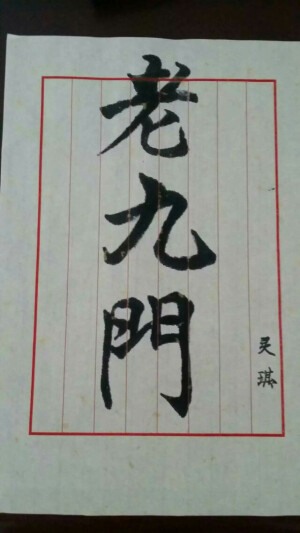 老九門
灵琪